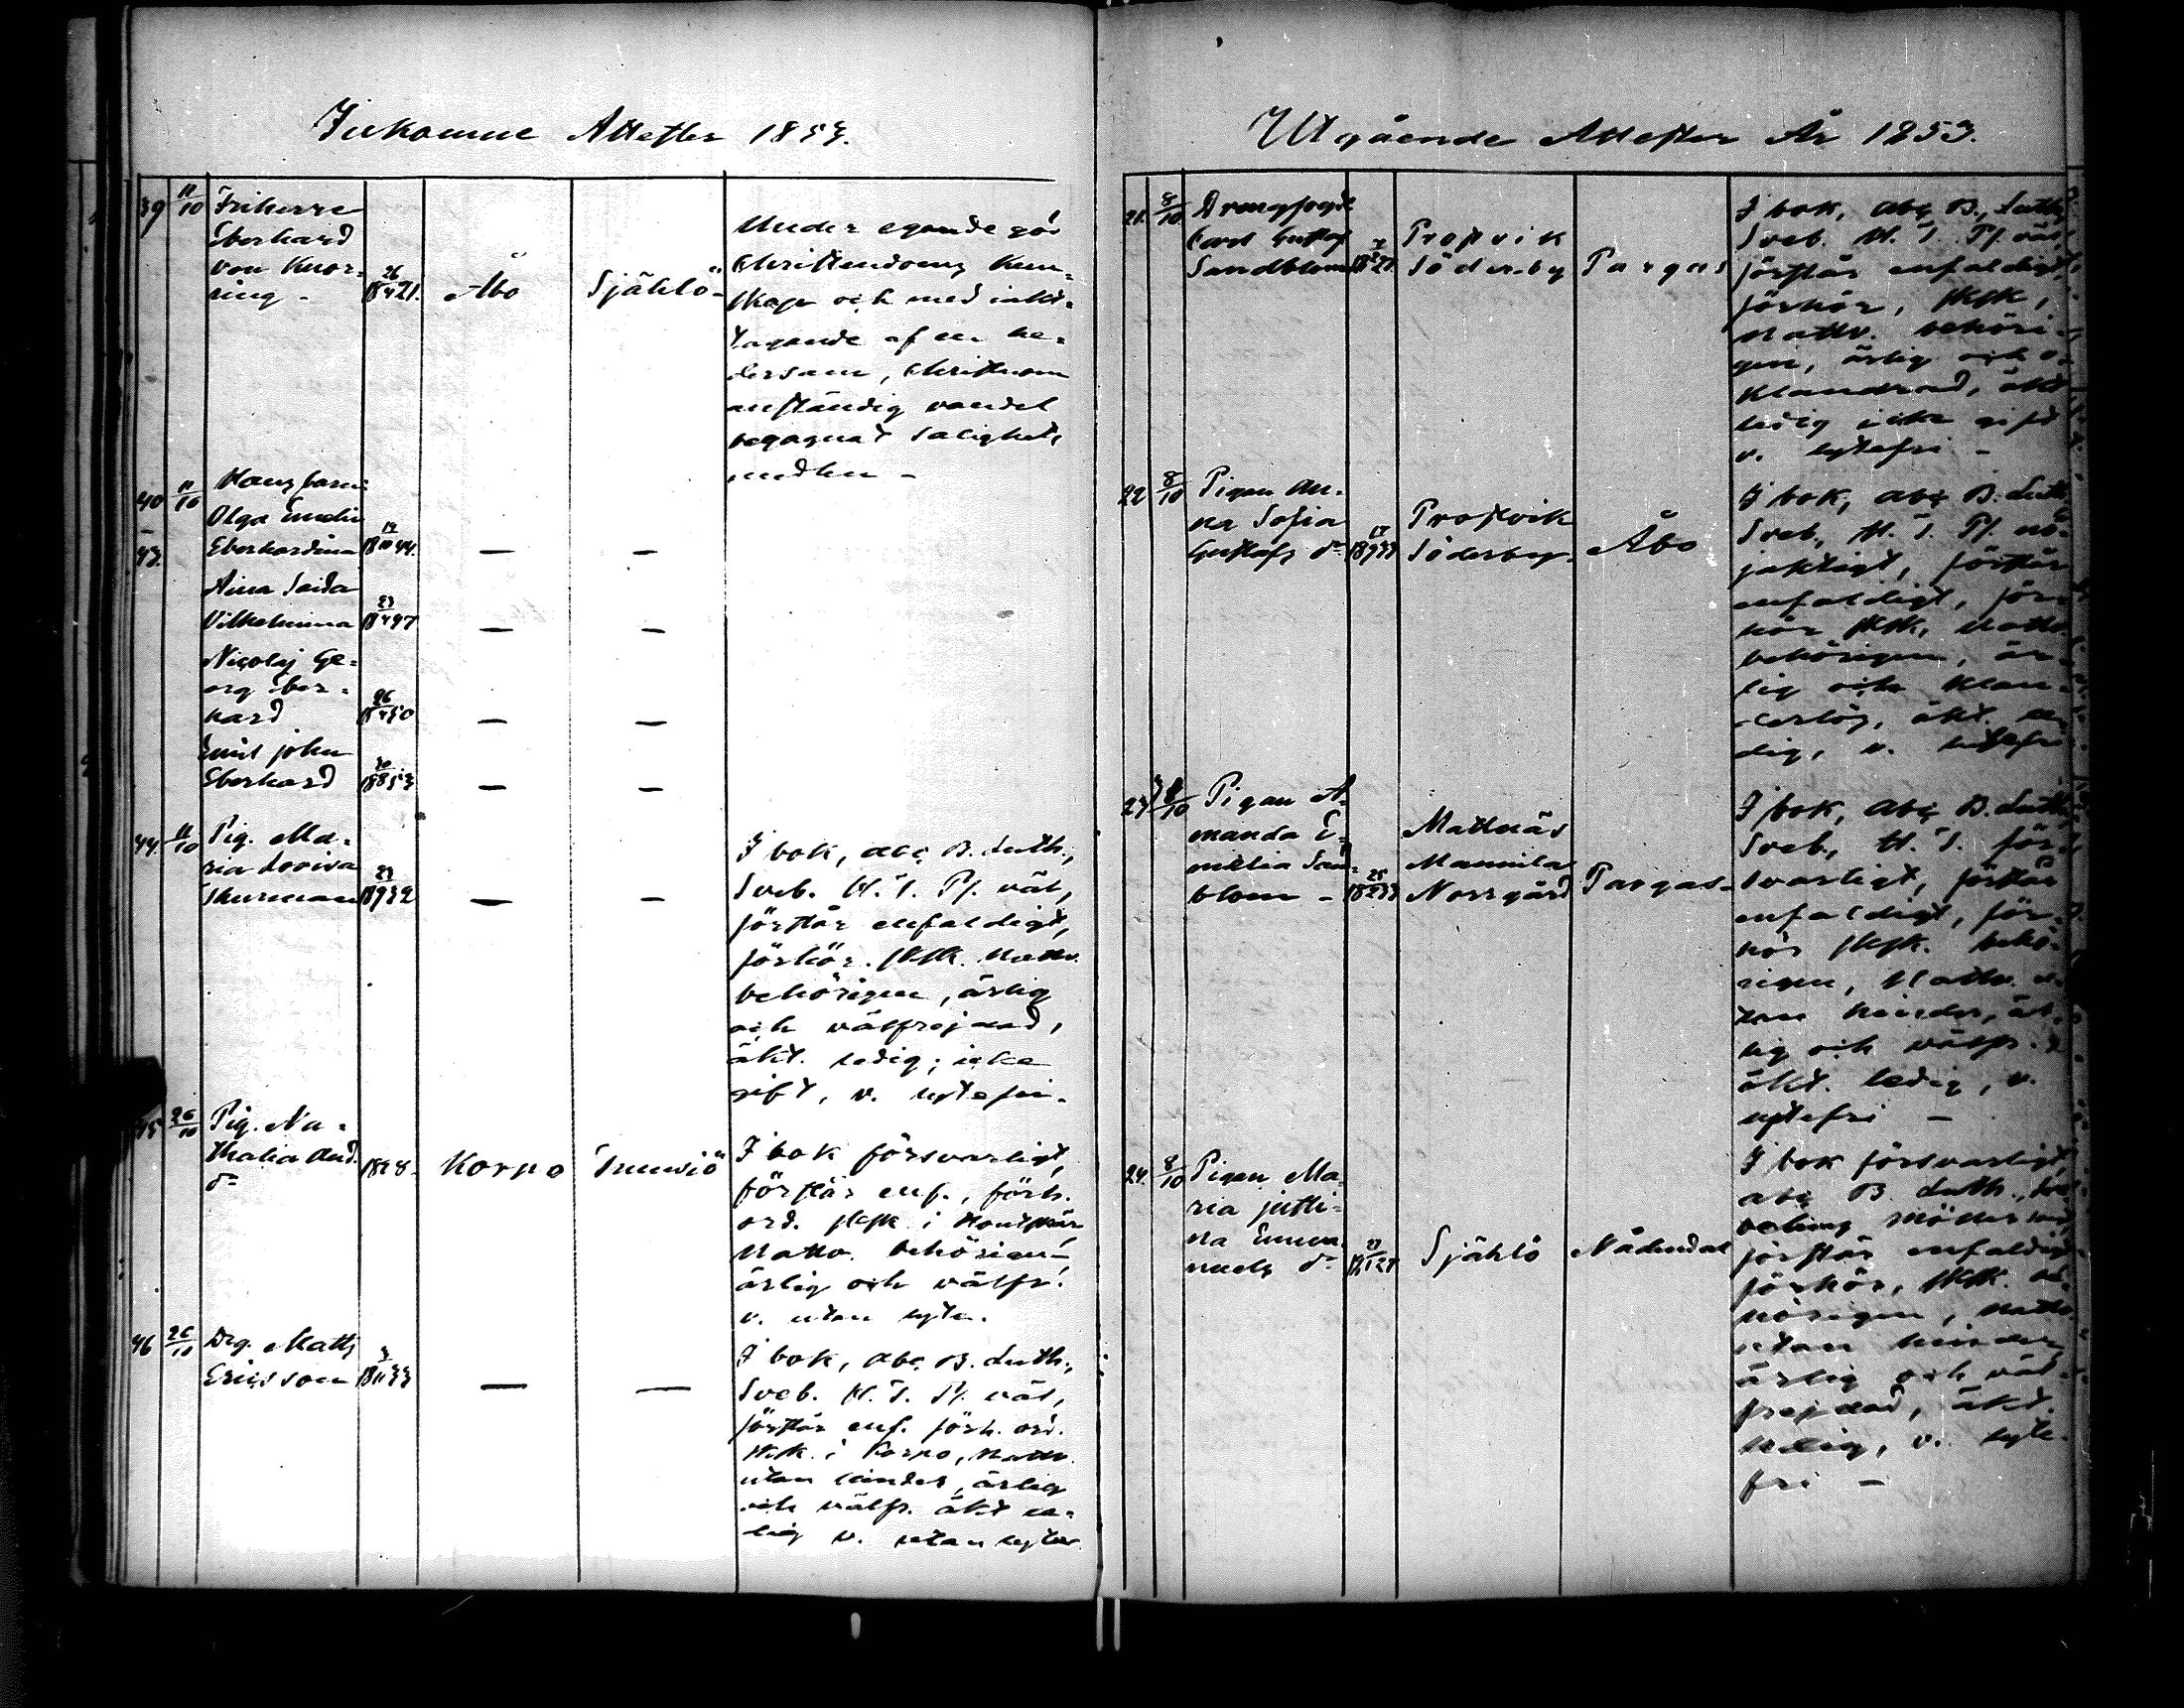 Inkomne Attester 1853.
39 11/10 Friherre
Eberhard
von Knor-
ring - 18 26/4 21. Åbo Själlö -
Under egande god
Christendoms kun-
skap och med iakt-
tagande af en he-
dersam, Christnom
anständig vandel
begagnat salighets
medlen -
40 11/10 Hans barn:
Olga Emelie
43. Eberhardina 18 19/10 44. — —
Aina Saida
Vilhelmina 18 23/4 47 — —
Nicolaj Ge-
org Eber-
hard 18 26/4 50 — —
Emil John
Eberhard 18 20/8 53 — —
44. 11/10 Pig. Ma-
ria Lovisa
Thurman 18 23/9 32 — —
I bok, abc B. Luth.,
Sveb. H. T. Ps. väl,
förstår enfaldigt,
förhör. sksk. Nattv.
behörigen, ärlig
och välfrejdad,
äkt. ledig, icke
gift, v. lytefri.
45 26/10 Pig. Na-
thalia And.
dr 1828. Korpo
I bok försvarligt,
förstår enf., förh.
ord. sksk. i
Nattv. behörigen
ärlig och välfr.
v. utan lyte.
46 26/10 Drg. Matts
Ericsson 18 3/11 33 — —
I bok, abc B. Luth.,
Sveb. H. T. Ps. väl,
förstår enf. förh. ord.
skk. i Korpo, Nattv.
utan hinder, ärlig
och välfr. äkt le-
dig v. utan lyte.
Utgående Attester År 1853.
21. 8/10 Drengfogde
Carl Gustaf
Sandblom Propvik
Söderby Pargas
I bok, abc B., Luth.,
Sveb. H. T. Ps. väl,
förstår enfaldigt,
förhör, sksk,
Nattv. behöri-
gen, ärlig och o-
klandrad, äkt
ledig icke gift
v. lytefri -
22 8/10 Pigan An-
na Sofia
Gustafs dr Propvik
Söderby - Åbo
I bok, abc B. Luth.
Sveb, H. T. Ps. nö-
jaktigt, förstår
enfaldigt, för-
hör sksk, Nattv.
behörigen, är-
lig och klan-
derlös, äkt. le-
dig, v. lytefri
23 8/10 Pigan A-
manda E-
milia Sand-
blom - 18 25/2 33 Mattnäs
Mannila
Norrgård Pargas -
I bok, abc B. Luth,
Sveb., H. T. för-
svarligt, förstår
enfaldigt, för-
hör sksk. behö-
rigen, Nattv. u-
tan hinder, är-
lig och välfr.
äkt. ledig, v.
lytefri -
24. 8/10 Pigan Ma-
ria Justi-
na Emma-
nuels dr Själlö Nådendal
I bok försvarligt,
abc B. Luth.,
förstår enfaldigt
förhör, sksk. be-
hörigen, Nattv.
utan hinder
ärlig och väl-
frejdad, äkt.
ledig, v. lyte-
fri -